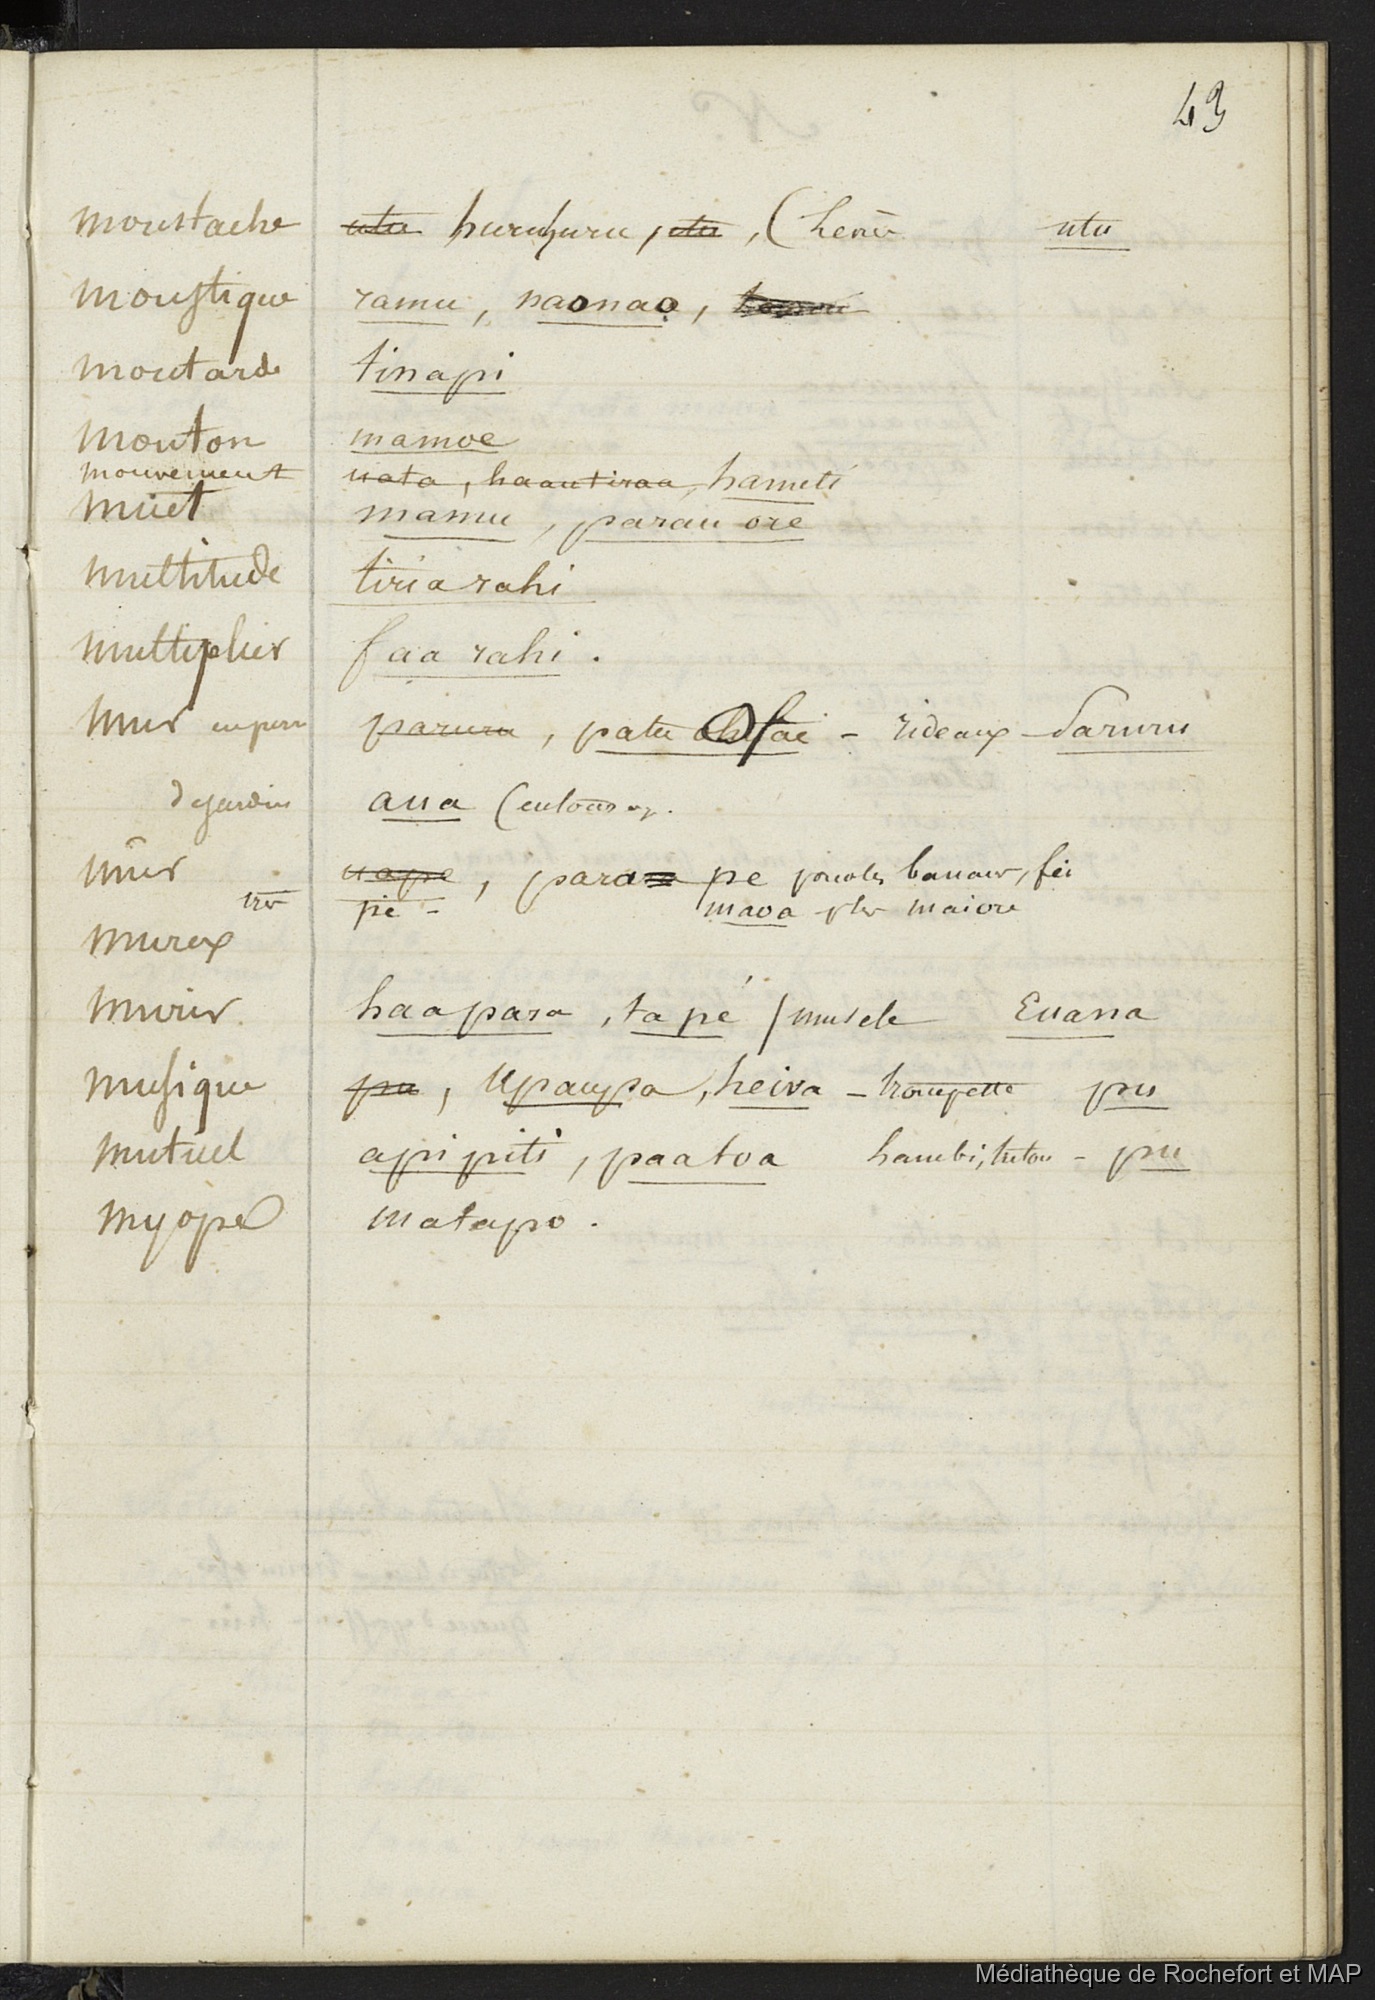 43
moustache utu huruhuru, utu, ( utu
moustique ramu, naonao,
moutarde tinapi
mouton mamoe
mouvement uata, haautiraa, hameti
muet mamu, parau ore
multitude tiria rahi
multiplier faa rahi.
mur paruru, patu ofai - rideaux - Paruru
de jardin aua (
mûr uape, para pe pour les banane, fei
très pie - maoa pr les maiore
murex
murir haapara, ta pé / muscle Euana
musique pu, Upaupa, heiva - trompette pu
mutuel apipiti, paatoa - pu
myope matapo.
Médiathèque de Rochefort et MAP